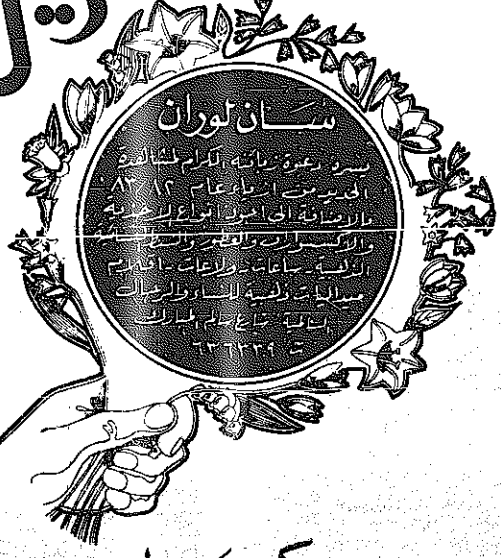 ســان لوران
يسره دعوة زبائنه الكرام لمشاهدة
الجديد من ازياء عام ٨٣/٨٢
بالاضافة الى اجود انواع الاحذية
والاكسسوارات والعطور
ساعات - ولاعات - اقلام
ميداليات ذهبية للنساء والرجال
السالمية - شارع سالم المبارك
ت ٦٣٦٣٣٩